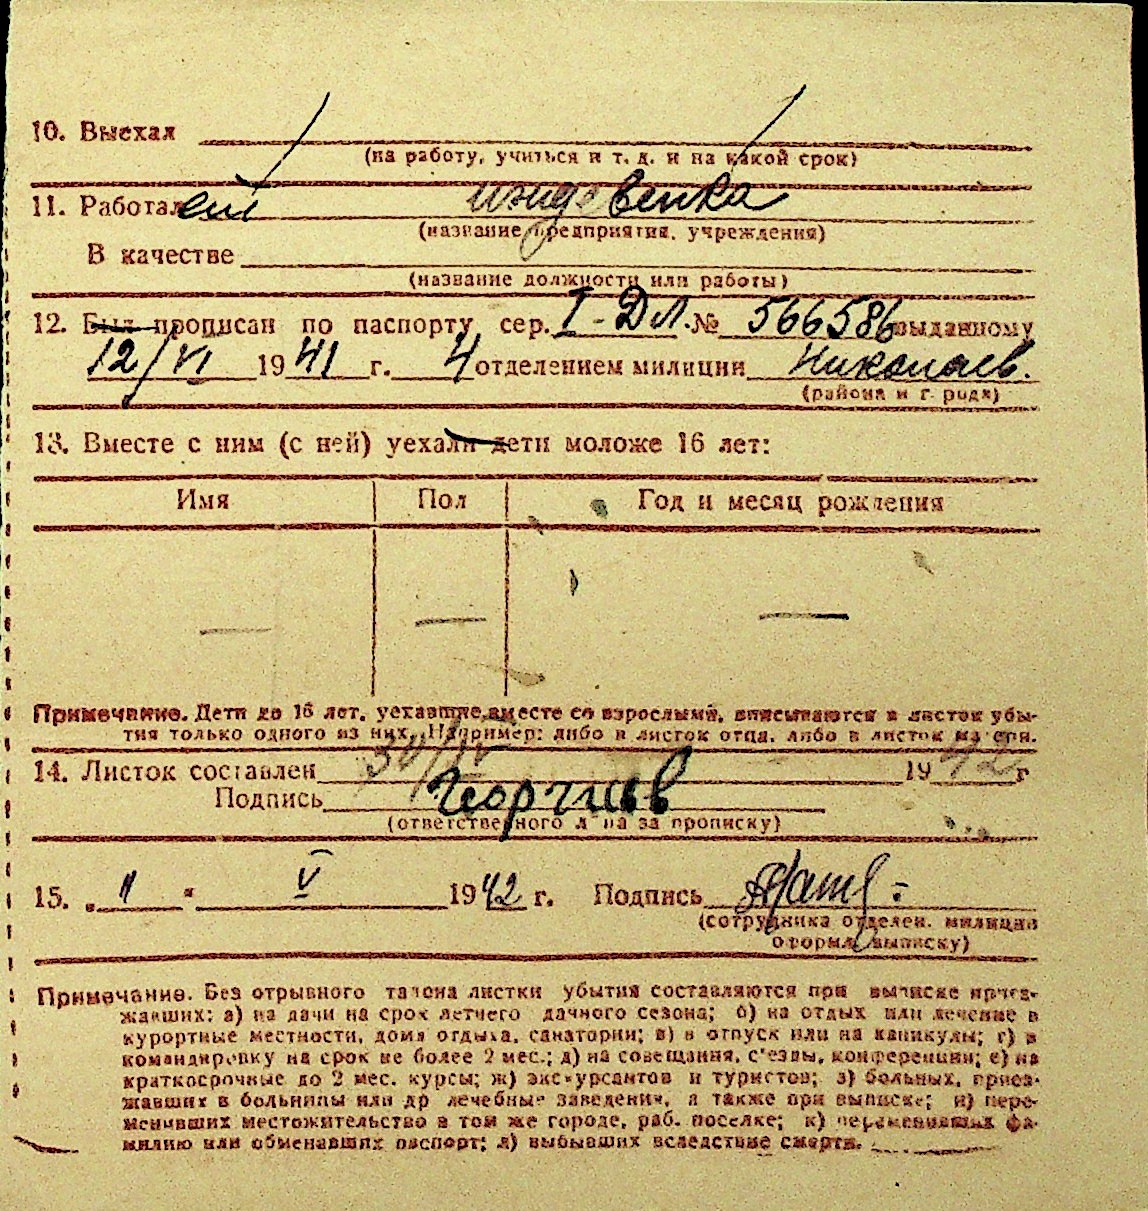 10. Выехал
(на работу, учиться и т. д. и на какой срок)
11. Работал иждевенка
(название предприятия, учреждения)
В качестве
(название должности или работы)
12. Был прописан по паспорту сер. I-ДЛ. № 566586 выданному
12/VI 1941 г. 4 отделением милиции Николаев.
(района и города)
13. Вместе с ним (с ней) уехали дети моложе 16 лет:
Имя Пол Год и месяц рождения
— — —
Примечание. Дети до 16 лет, уехавшие вместе со взрослыми, вписываются в листок убы-
тия только одного из них. Например: либо в листок отца, либо в листок матери.
14. Листок составлен 30/IV 1942 г
Подпись Георгиев
(ответственного лица за прописку)
15. „ 11 " V 1942 г. Подпись
(сотрудника отделен. милиции
оформл. выписку)
Примечание. Без отрывного талона листки убытия составляются при выписке приез-
жавших: а) на дачи на срок летнего дачного сезона; б) на отдых или лечение в
курортные местности, дома отдыха, санатории; в) в отпуск или на каникулы; г) в
командировку на срок не более 2 мес.; д) на совещания, с'езды, конференции; е) на
краткосрочные до 2 мес. курсы; ж) экскурсантов и туристов; з) больных, приез-
жавших в больницы или др лечебные заведения, а также при выписке; и) пере-
менивших местожительство в том же городе, раб. поселке; к) переменивших фа-
милию или обменавших паспорт; л) выбывших вследствие смерти.